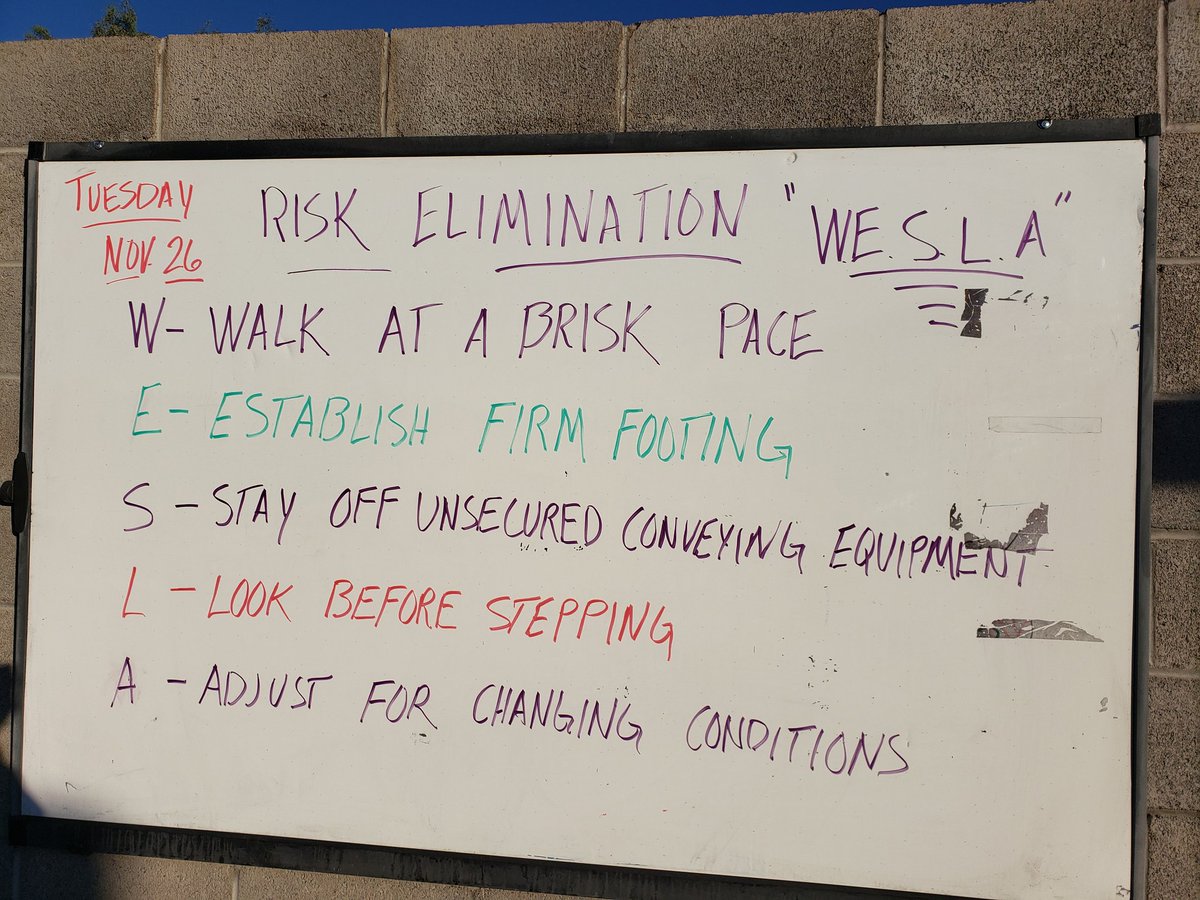 TUESDAY
NOV. 26
RISK ELIMINATION "W.E.S.L.A"
W- WALK AT A BRISK PACE
E- ESTABLISH FIRM FOOTING
S - STAY OFF UNSECURED CONVEYING EQUIPMENT
L - LOOK BEFORE STEPPING
A - ADJUST FOR CHANGING CONDITIONS